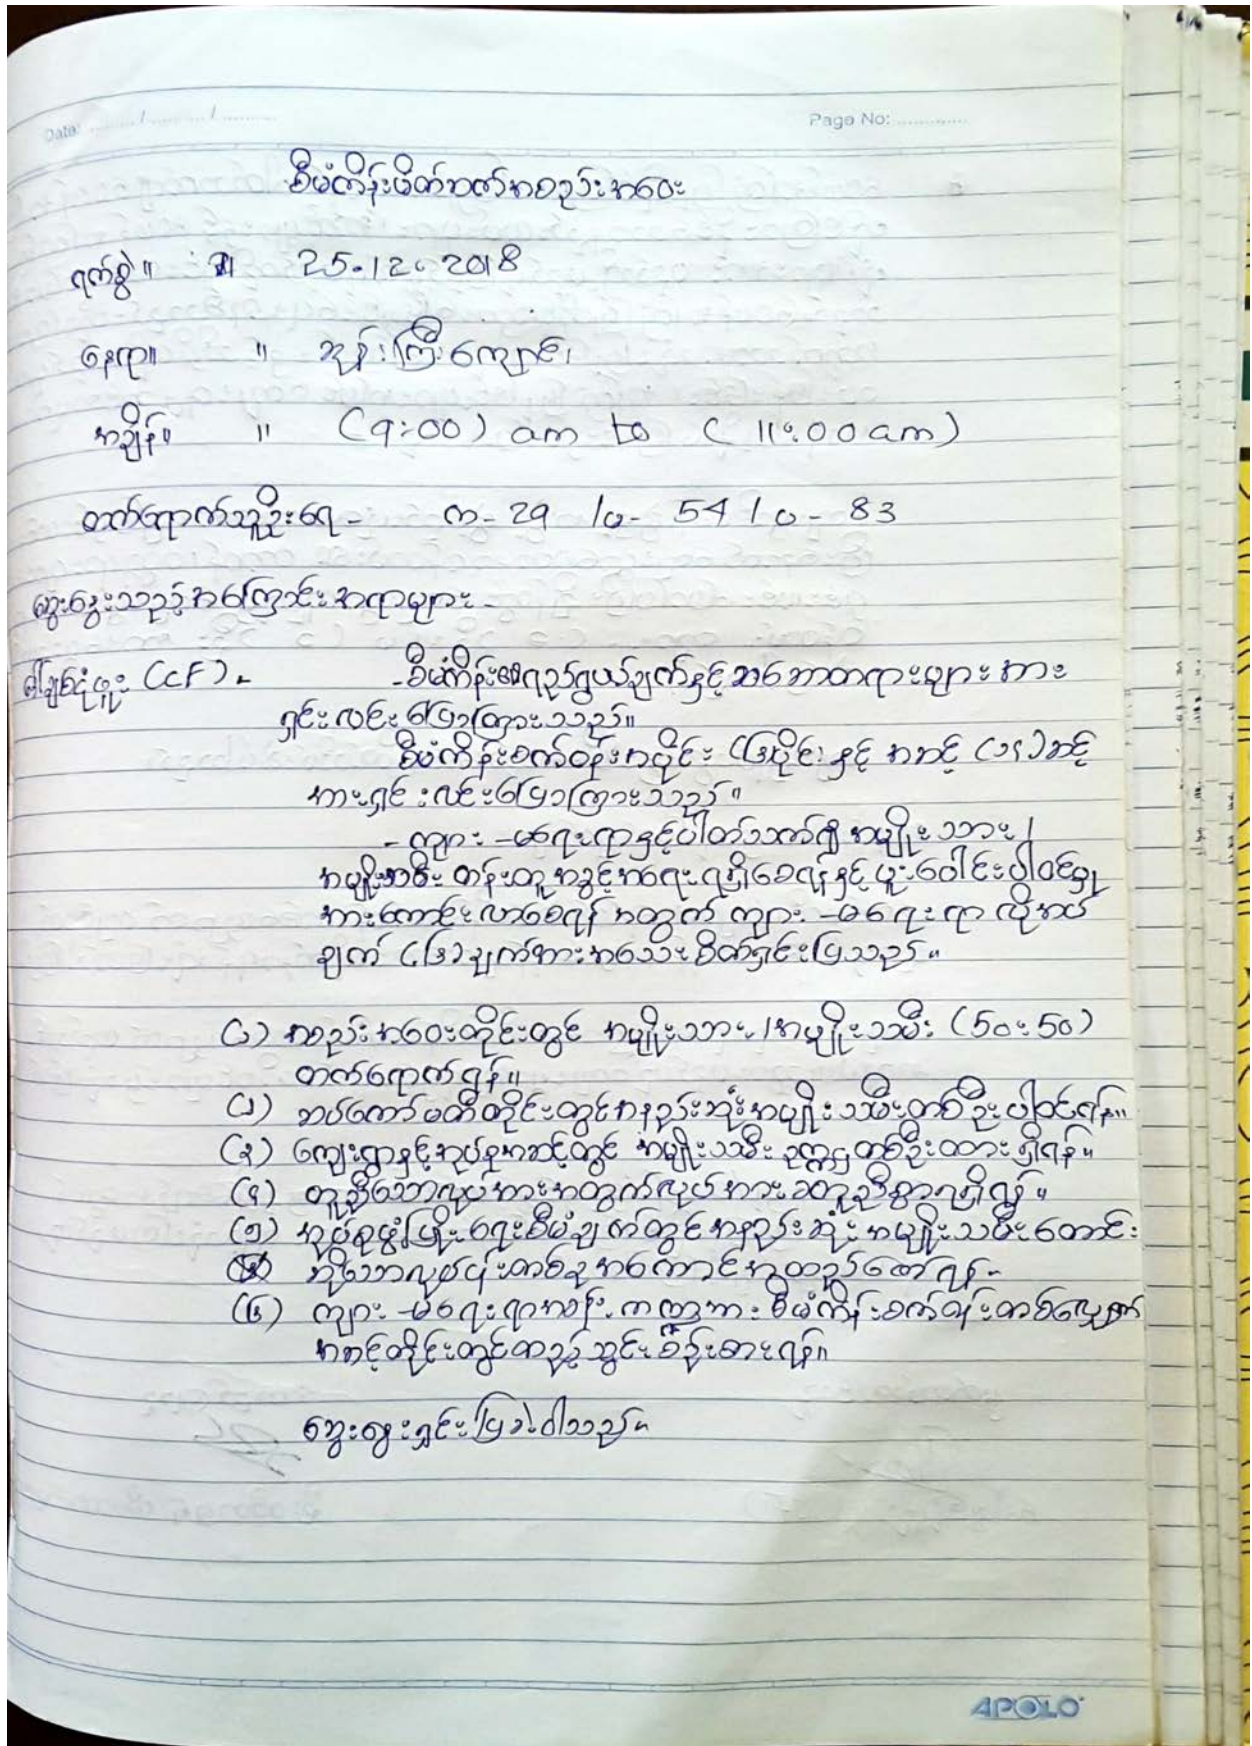 Date: ......../......../........
Page No: ............
စီမံကိန်းမိတ်ဆက်အစည်းအဝေး
ရက်စွဲ။ ။ 25.12.2018
နေရာ။ ။ ဘုန်းကြီးကျောင်း
အချိန်။ ။ (9:00) am to (11:00am)
တက်ရောက်သူဦးရေ - က- 29 / မ- 54 / ပ - 83
ဆွေးနွေးသည့်အကြောင်းအရာများ -
(CF) - -စီမံကိန်း၏ရည်ရွယ်ချက်နှင့်သဘောတရားများအား
ရှင်းလင်းပြောကြားသည်။
စီမံကိန်းစက်ဝန်းအပိုင်း (၆)ပိုင်းနှင့် အဆင့် (၁၄)ဆင့်
အားရှင်းလင်းပြောကြားသည်။
- ကျား -မရေးရာနှင့်ပါတ်သက်၍ အမျိုးသား /
အမျိုးသမီး တန်းတူအခွင့်အရေးရရှိစေရန်နှင့် ပူးပေါင်းပါဝင်မှု
အားကောင်းလာစေရန် အတွက် ကျား -မရေးရာ လိုအပ်
ချက် (၆)ချက်အားအသေးစိတ်ရှင်းပြသည်။
(၁) အစည်းအဝေးတိုင်းတွင် အမျိုးသား/အမျိုးသမီး (50:50)
တက်ရောက်ရန်။
(၂) ဆပ်ကော်မတီတိုင်းတွင်အနည်းဆုံးအမျိုးသမီးတစ်ဦးပါဝင်ရန်။
(၃) ကျေးရွာနှင့်အုပ်စုအဆင့်တွင် အမျိုးသမီး ဥက္ကဌတစ်ဦးထားရှိရန်။
(၄) တူညီသောလုပ်အားအတွက်လုပ်အားခတူညီစွာရရှိရန်။
(၅) အုပ်စုဖွံ့ဖြိုးရေးစီမံချက်တွင်အနည်းဆုံး အမျိုးသမီးတောင်း
ဆိုသောလုပ်ငန်းတစ်ခုအကောင်အထည်ဖော်ရန်-
(၆) ကျား -မရေးရာအခန်းကဏ္ဍအား စီမံကိန်းစက်ဝန်းတစ်လျှောက်
အဆင့်တိုင်းတွင်ထည့်သွင်းစဉ်းစားရန်။
ဆွေးနွေးရှင်းပြခဲ့ပါသည်။
APOLO